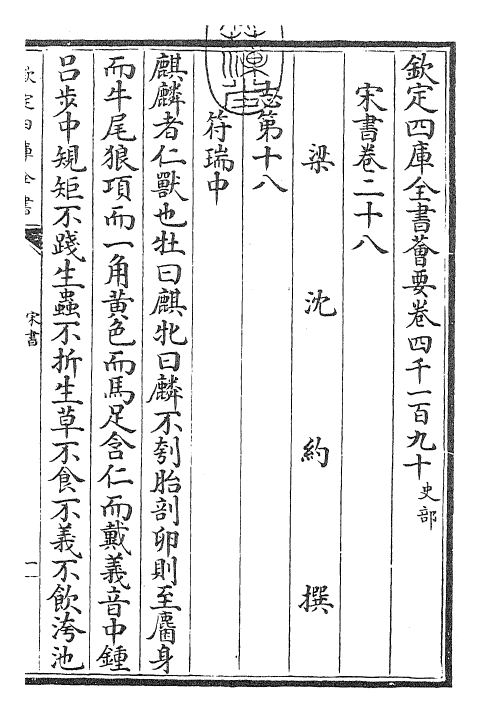 欽定四庫全書薈要卷四千一百九十 史部
宋書卷二十八
梁沈約撰
志第十八
符瑞中
麒麟者仁獸也牡曰麒牝曰麟不刳胎剖卵則至麕身
而牛尾狼項而一角黃色而馬足含仁而戴義音中鍾
呂步中規矩不踐生蟲不折生草不食不義不飲洿池
欽定四庫全書
宋書
一